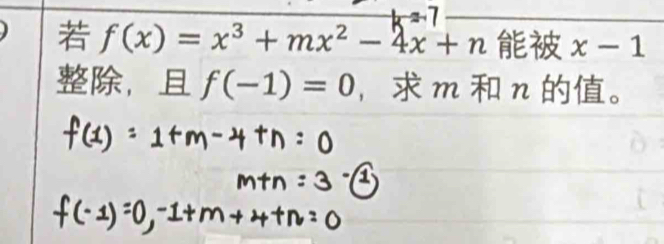 k = -7
若 f(x) = x³ + mx² − 4x + n 能被 x − 1
整除，且 f(−1) = 0，求 m 和 n 的值。
f(1) = 1+m-4+n = 0
m+n = 3 - ①
f(-1) = 0, -1+m+4+n = 0